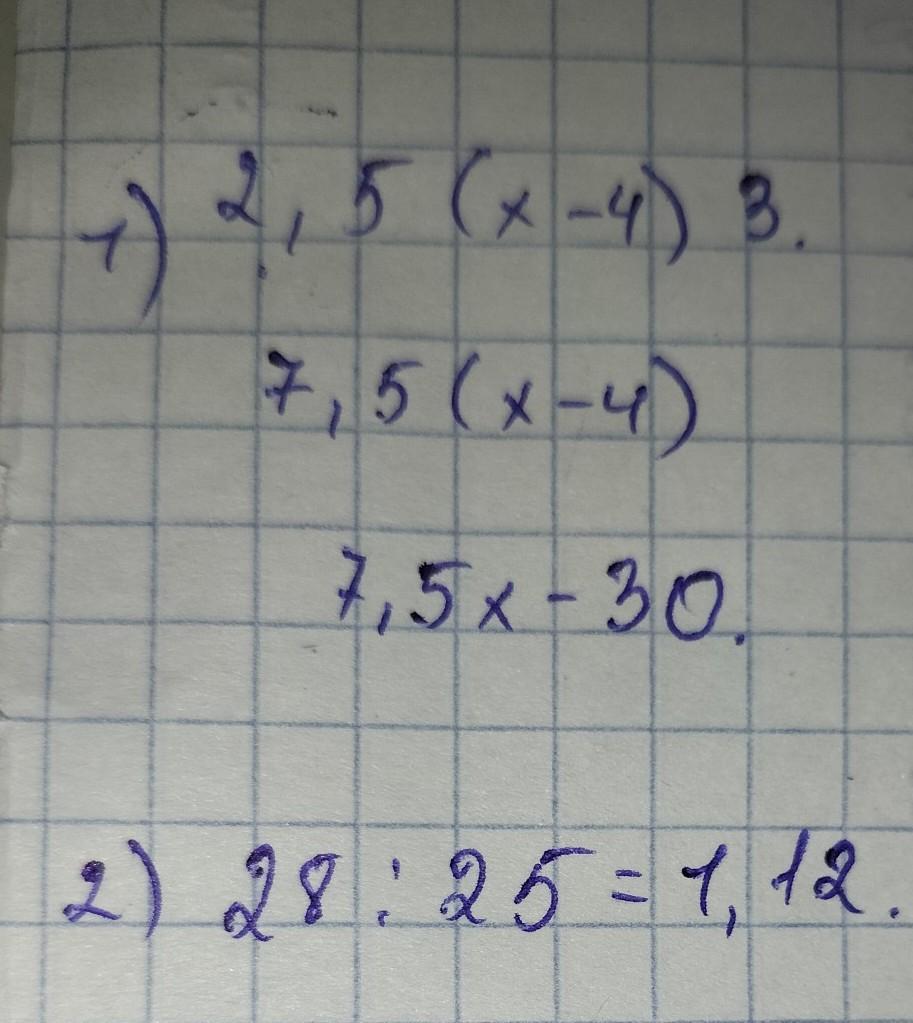 1) 2,5 (x-4) 3.
7,5 (x-4)
7,5x - 30.
2) 28 : 25 = 1,12.